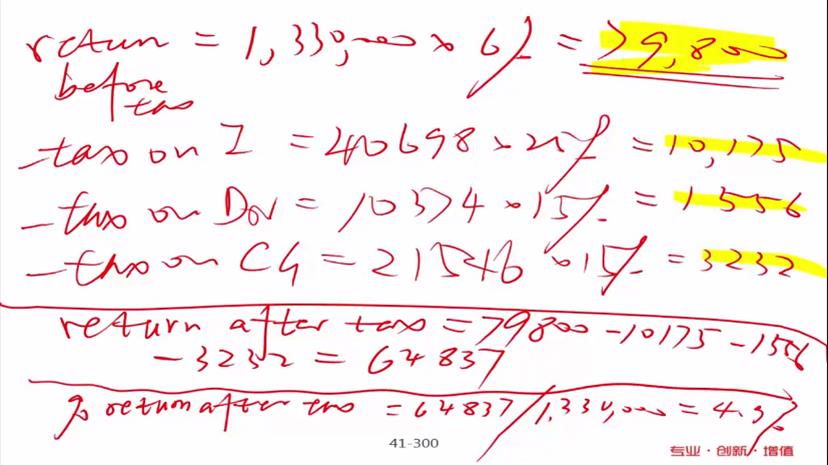 return = 1,330,000 × 6% = 79,800
before
tax
- tax on I = 40698 × 25% = 10,175
- tax on Div = 10374 × 15% = 1556
- tax on CG = 21546 × 15% = 3232
return after tax = 79800 - 10175 - 1556
- 3232 = 64837
% return after tax = 64837 / 1,330,000 = 4.9%
41-300
专业·创新·增值